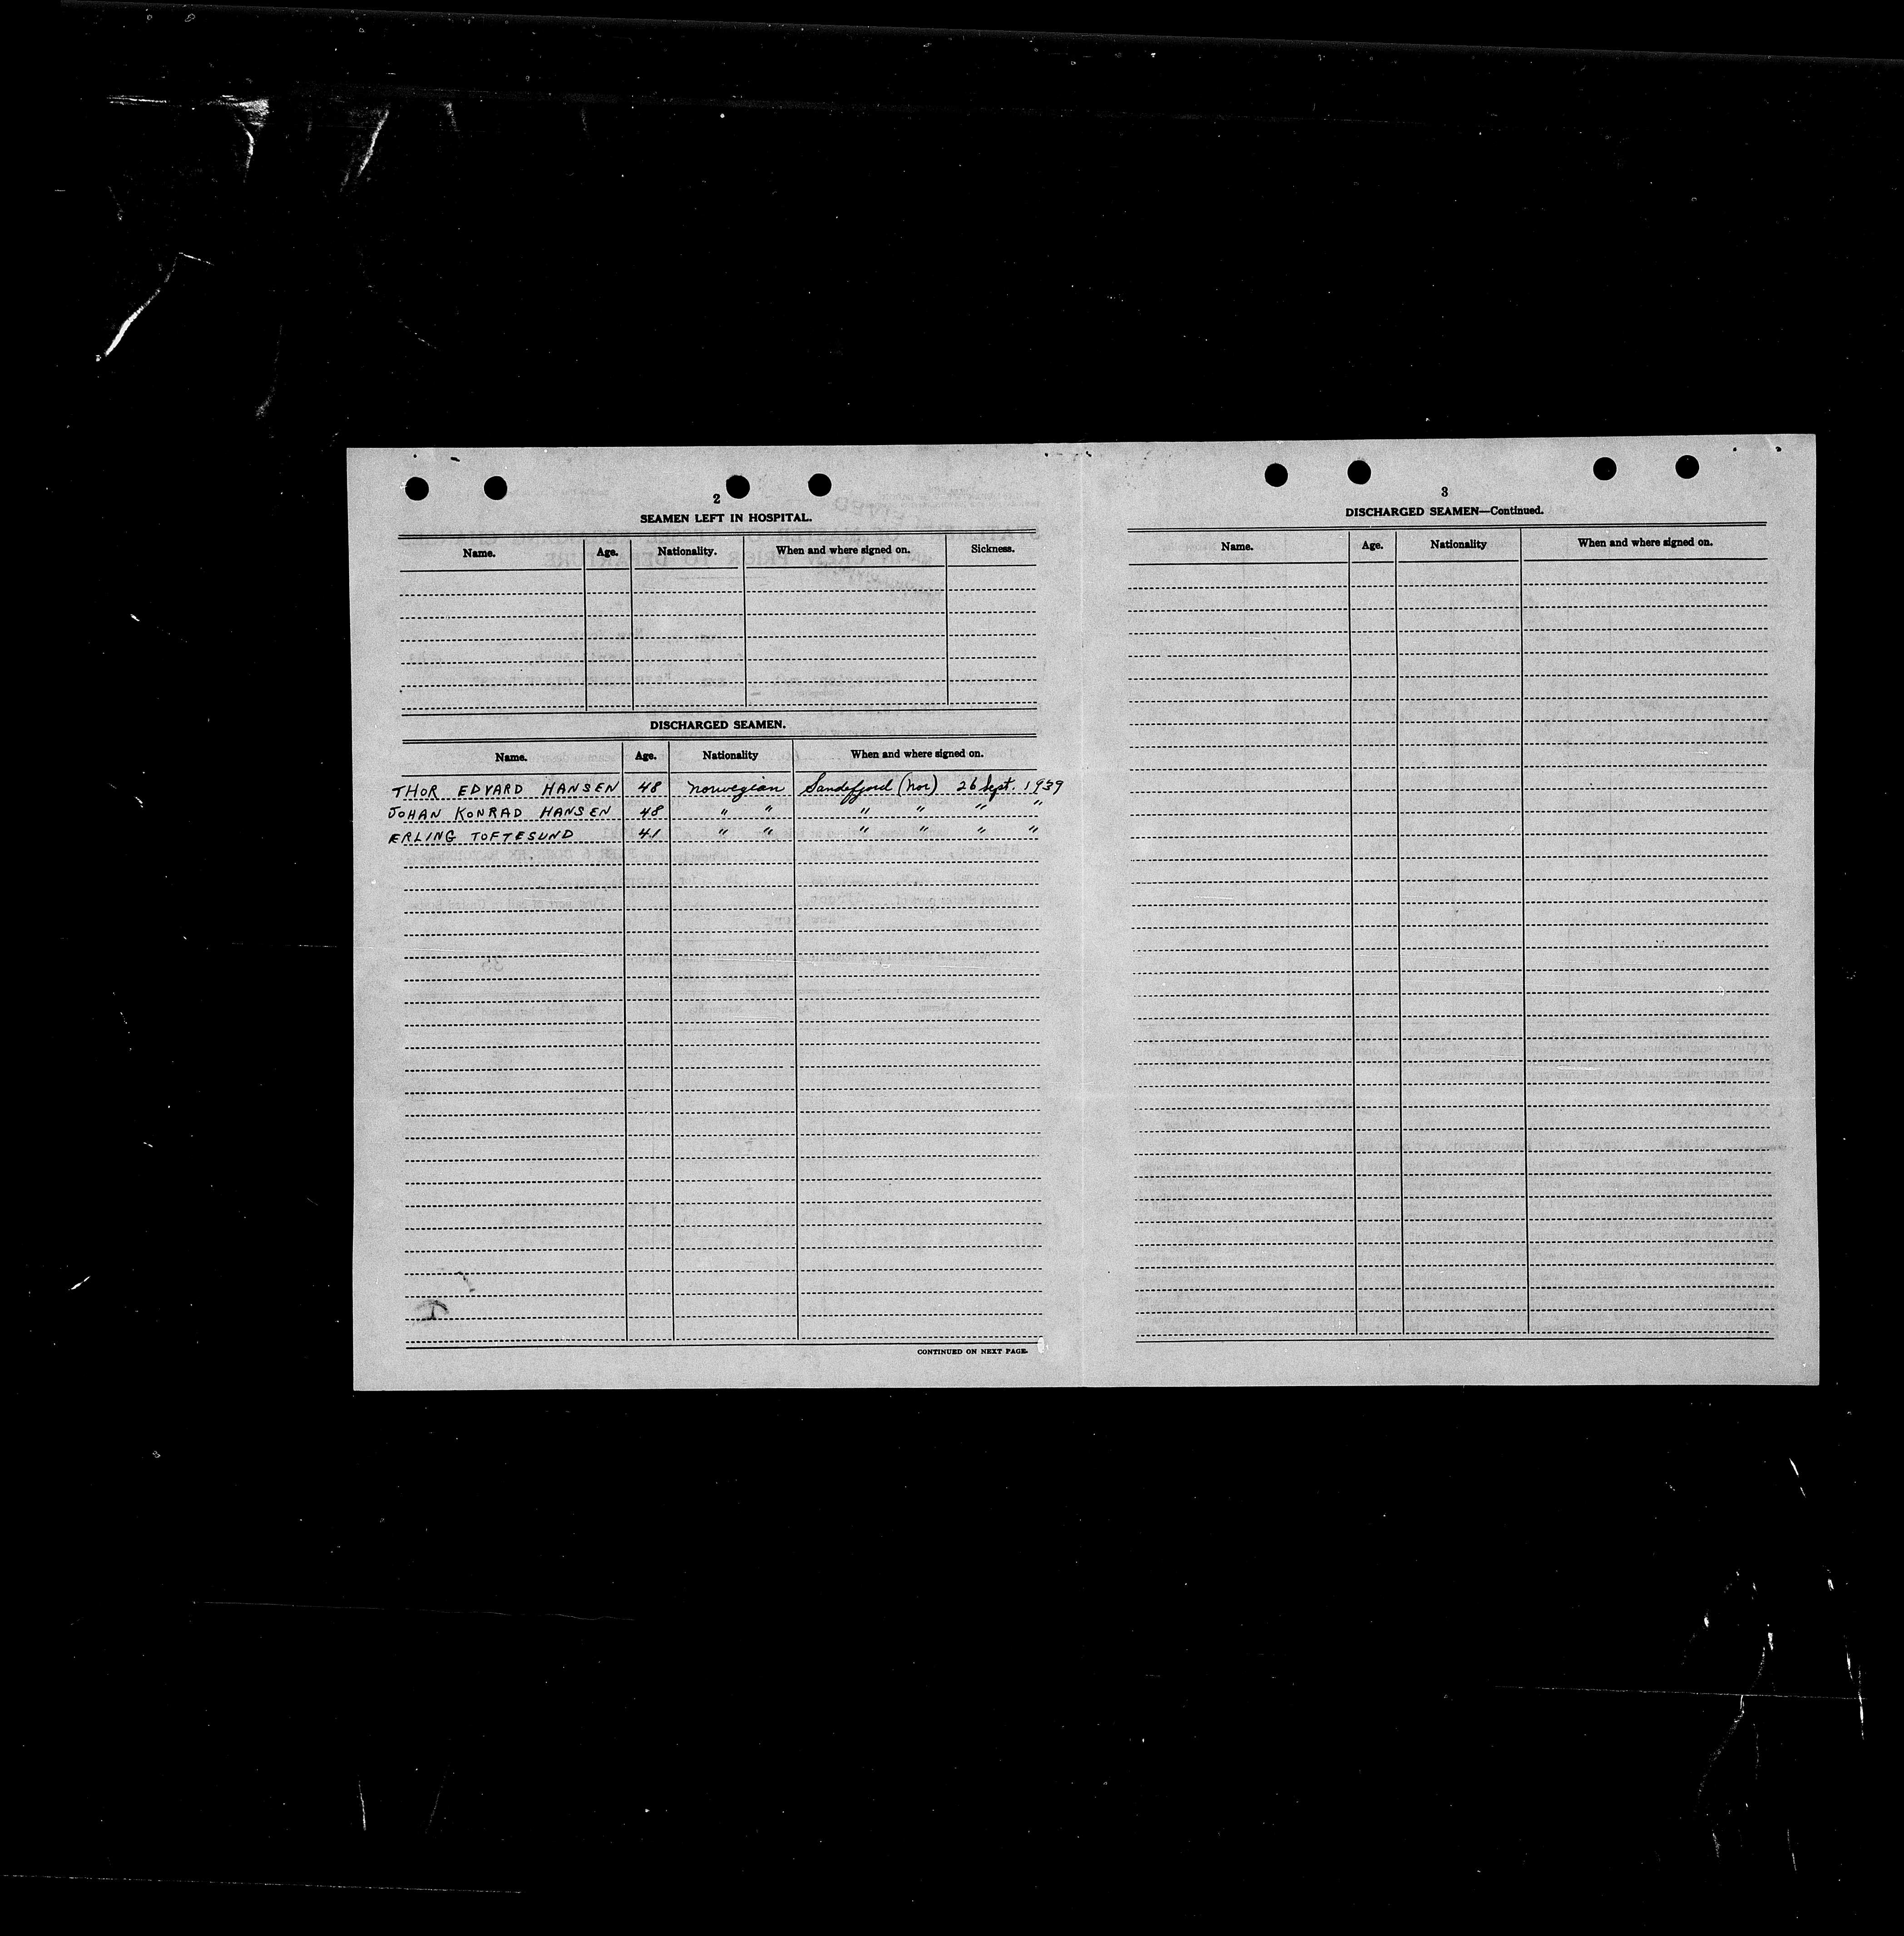 2
SEAMEN LEFT IN HOSPITAL.
Name. Age. Nationality. When and where signed on. Sickness.
DISCHARGED SEAMEN.
Name. Age. Nationality When and where signed on.
THOR EDVARD HANSEN 48 Norwegian Sandefjord (Nor) 26 Sept. 1939
JOHAN KONRAD HANSEN 48 " " " " " "
ERLING TOFTESUND 41 " " " " " "
CONTINUED ON NEXT PAGE.
3
DISCHARGED SEAMEN—Continued.
Name. Age. Nationality When and where signed on.